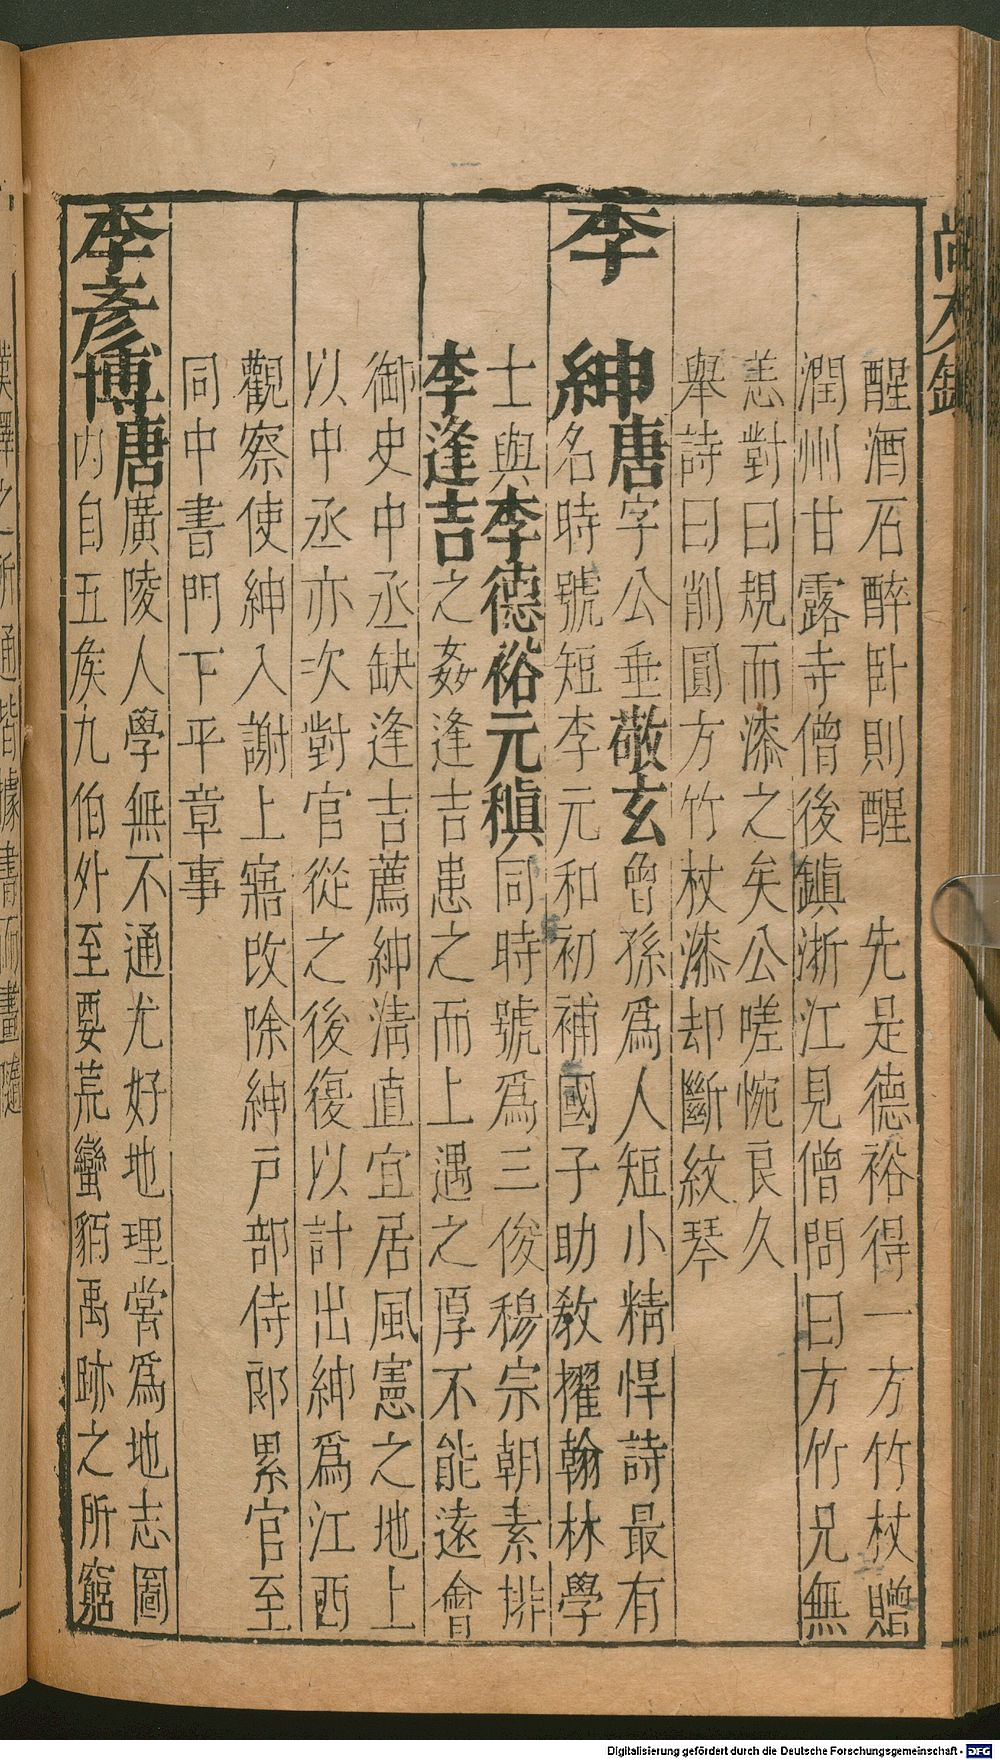 醒酒石醉卧則醒　先是德裕得一方竹杖贈
潤州甘露寺僧後鎮浙江見僧問曰方竹兄無
恙對曰規而漆之矣公嗟惋良久
舉詩曰削圓方竹杖漆却斷紋琴
李紳唐字公垂敬玄曾孫爲人短小精悍詩最有
名時號短李元和初補國子助教擢翰林學
士與李德裕元稹同時號爲三俊穆宗朝素排
李逢吉之姦逢吉患之而上遇之厚不能遠會
御史中丞缺逢吉薦紳淸直宜居風憲之地上
以中丞亦次對官從之後復以計出紳爲江西
觀察使紳入謝上寤改除紳戶部侍郎累官至
同中書門下平章事
李彥博唐廣陵人學無不通尤好地理嘗爲地志圖
內自五矦九伯外至要荒蠻貊禹跡之所窮
漢譯之所通皆據書而畫隨
Digitalisierung gefördert durch die Deutsche Forschungsgemeinschaft - DFG